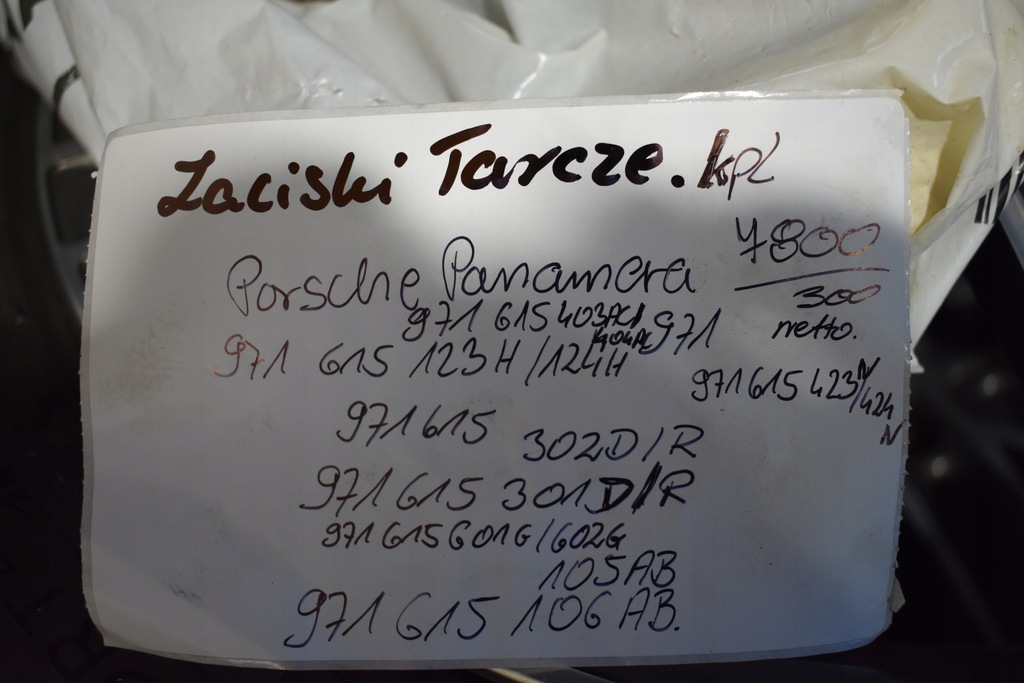 Zaciski Tarcze. kpl
Porsche Panamera
7800
300
netto.
971 615 403AC/
404AC
971
971 615 123H/124H
971 615 423N/424N
971 615 302D/R
971 615 301D/R
971 615 601G/602G
105AB
971 615 106AB.